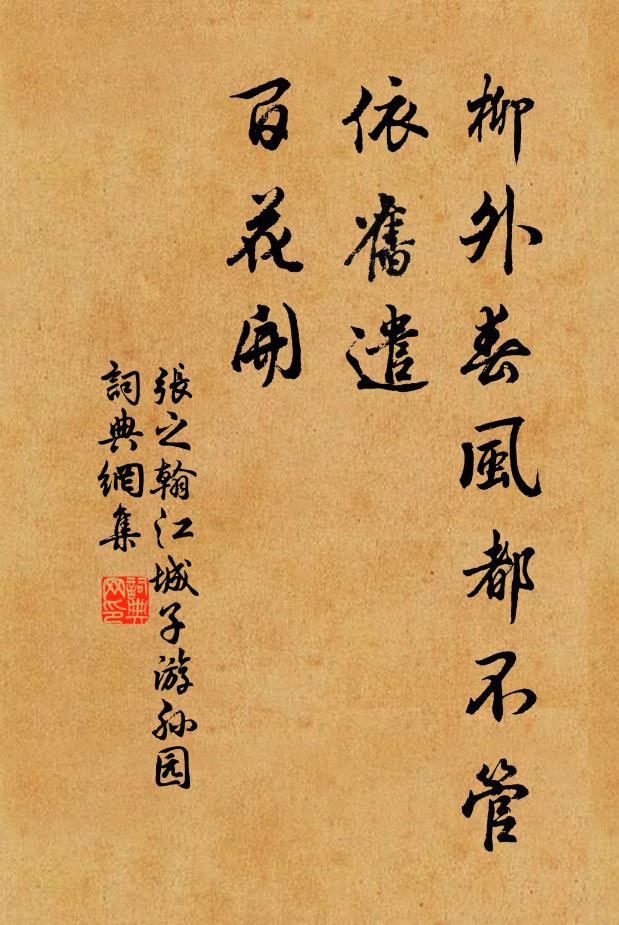 柳外春風都不管
依舊遣
百花開
張之翰江城子游孙园
詞典網集
詞典
网印